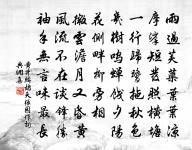 雨過芙蕖葉葉涼
摩挲短髮照橫塘
一行歸鷺拖秋色
幾樹鳴蟬餞夕陽
花側畔柳旁相
微雲澹月又昏黃
風流不在談鋒勝
袖手無言味最長